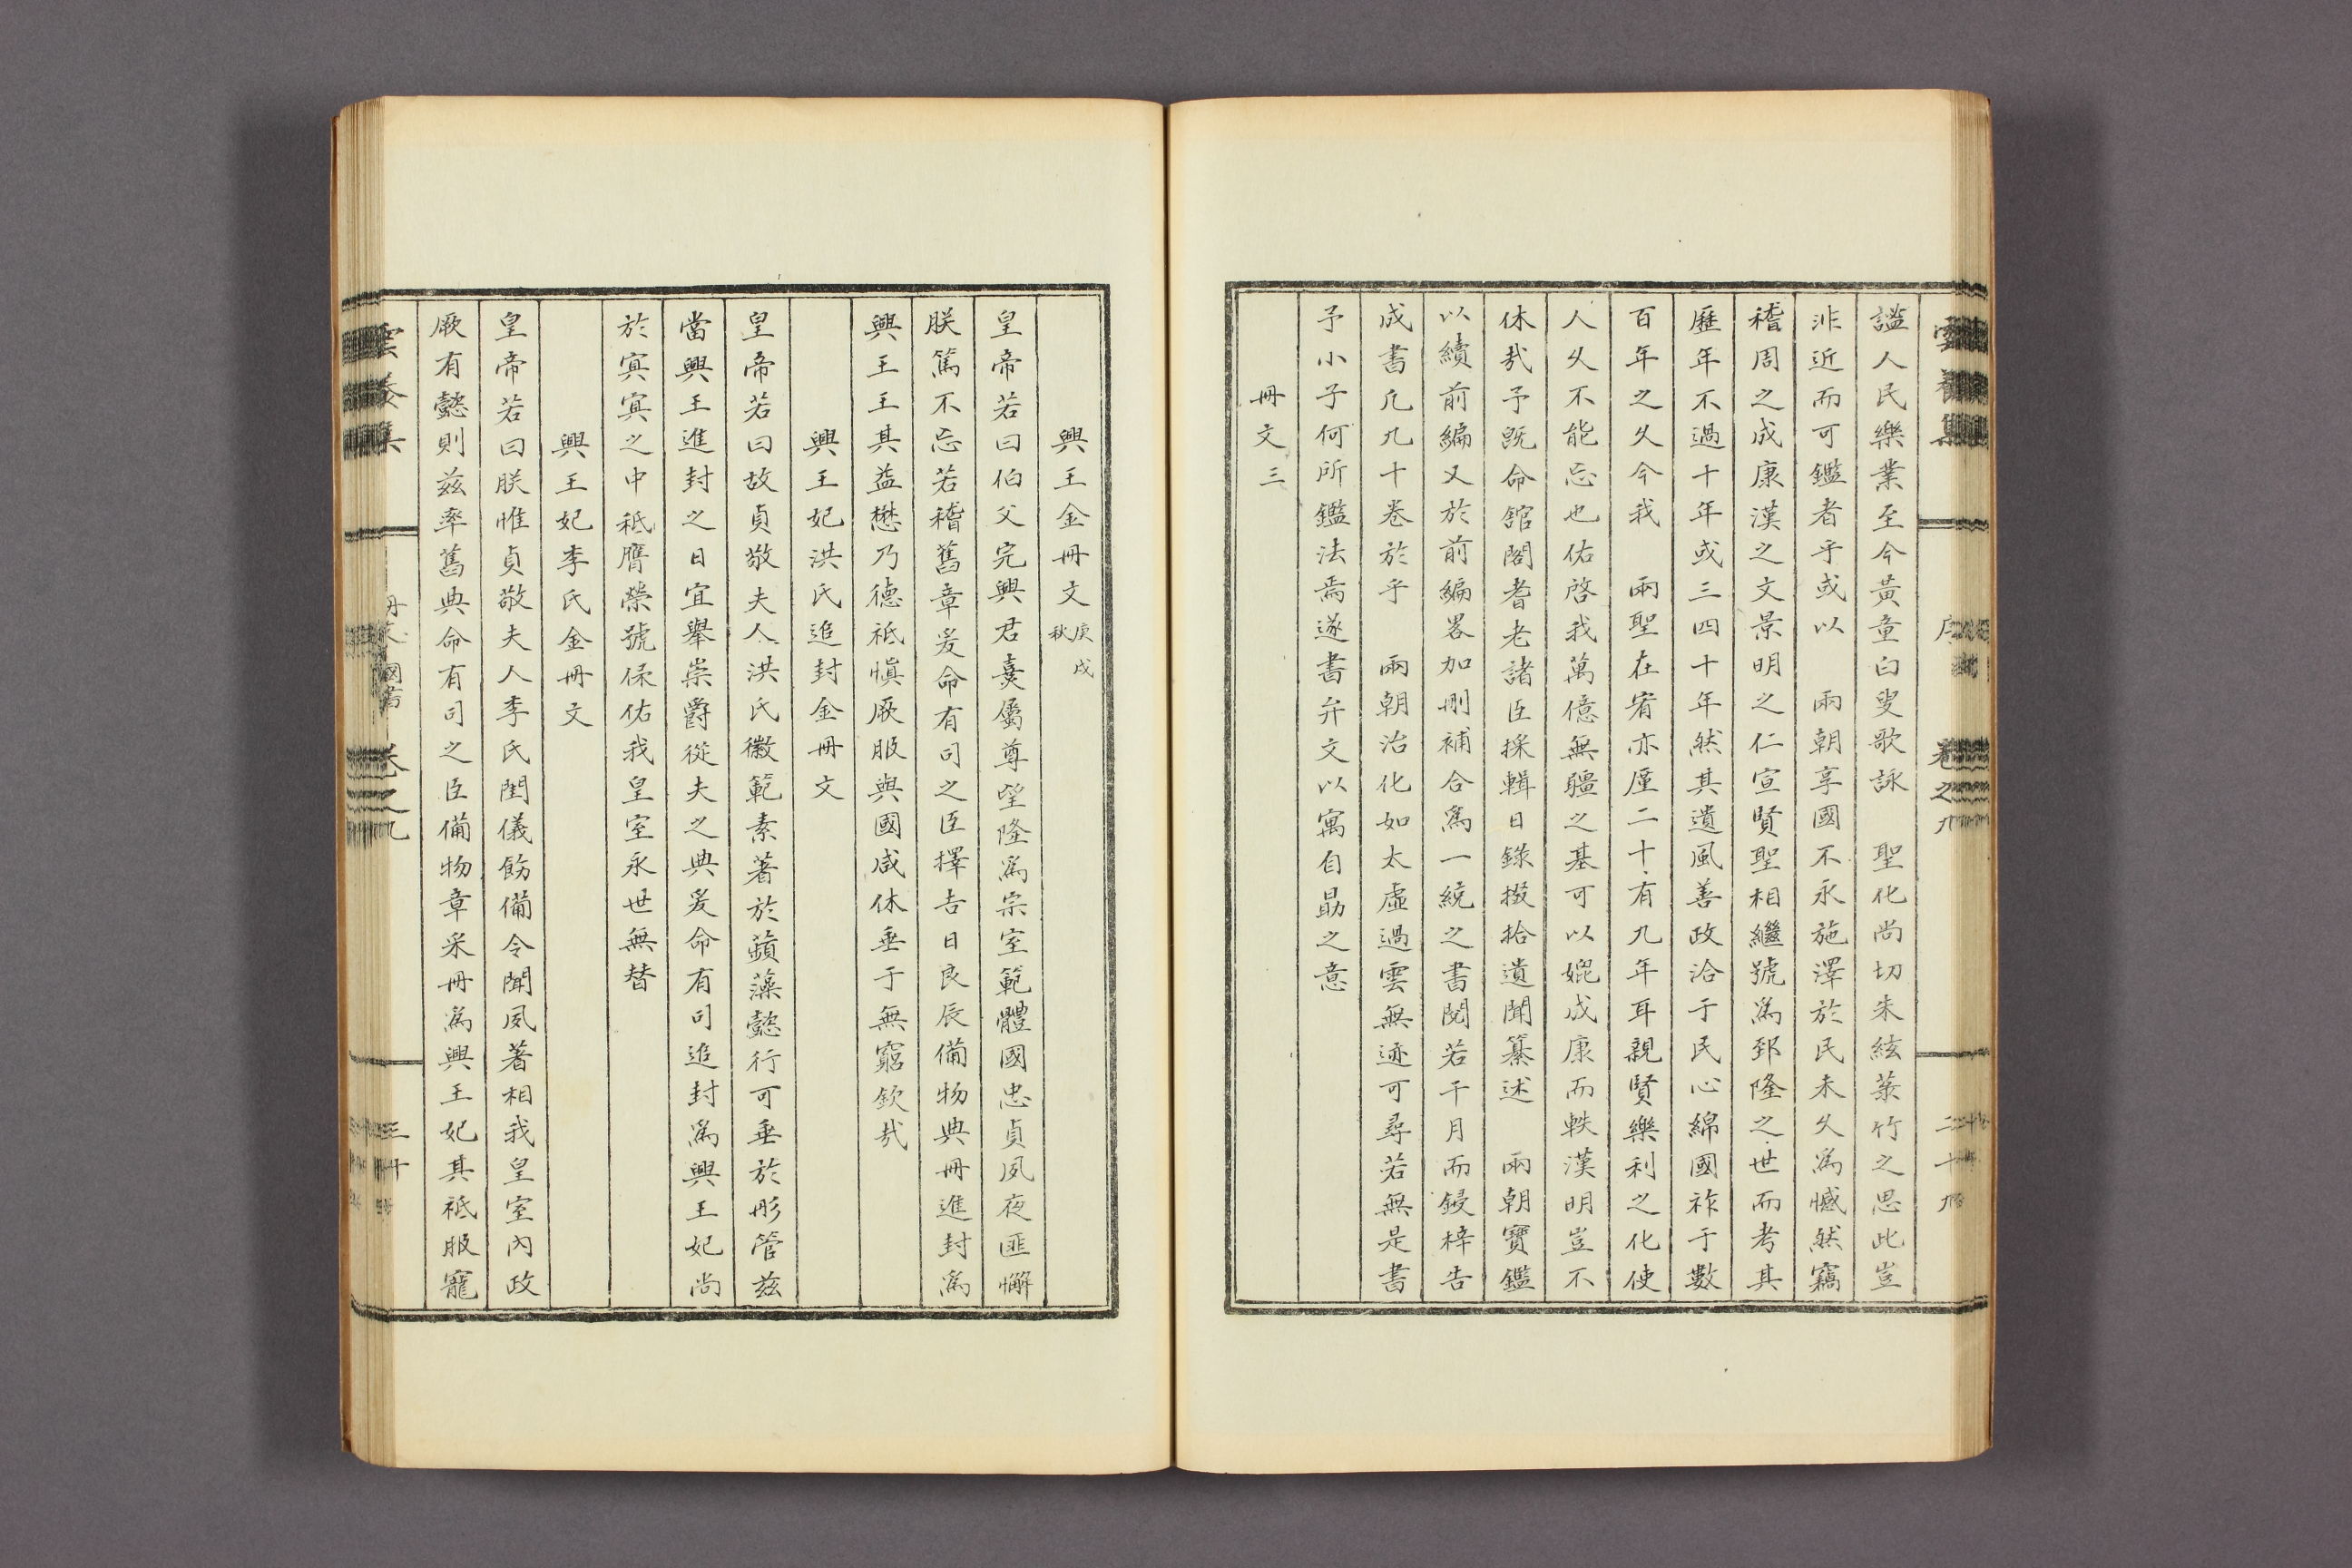 謐人民樂業至今黃童白叟歌詠　聖化尚切朱絃菉竹之思此豈
非近而可鑑者乎或以　兩朝享國不永施澤於民未久爲憾然竊
稽周之成康漢之文景明之仁宣賢聖相繼號爲郅隆之世而考其
歷年不過十年或三四十年然其遺風善政洽于民心綿國祚于數
百年之久今我　兩聖在宥亦厪二十有九年耳親賢樂利之化使
人久不能忘也佑啓我萬億無疆之基可以媲成康而軼漢明豈不
休哉予旣命舘閣耆老諸臣採輯日錄掇拾遺聞纂述　兩朝寶鑑
以續前編又於前編畧加刪補合爲一統之書閱若干月而鋟梓告
成書凡九十卷於乎　兩朝治化如太虛過雲無迹可尋若無是書
予小子何所鑑法焉遂書弁文以寓自勗之意
冊文三
興王金冊文庚戌秋
皇帝若曰伯父完興君熹屬尊望隆爲宗室範體國忠貞夙夜匪懈
朕篤不忘若稽舊章爰命有司之臣擇吉日良辰備物典冊進封爲
興王王其益懋乃德祗愼厥服與國咸休垂于無窮欽哉
興王妃洪氏追封金冊文
皇帝若曰故貞敬夫人洪氏徽範素著於蘋藻懿行可垂於彤管玆
當興王進封之日宜擧崇爵從夫之典爰命有司追封爲興王妃尚
於冥冥之中祗膺榮號保佑我皇室永世無替
興王妃李氏金冊文
皇帝若曰朕惟貞敬夫人李氏閨儀飭備令聞夙著相我皇室內政
厥有懿則玆率舊典命有司之臣備物章采冊爲興王妃其祗服寵